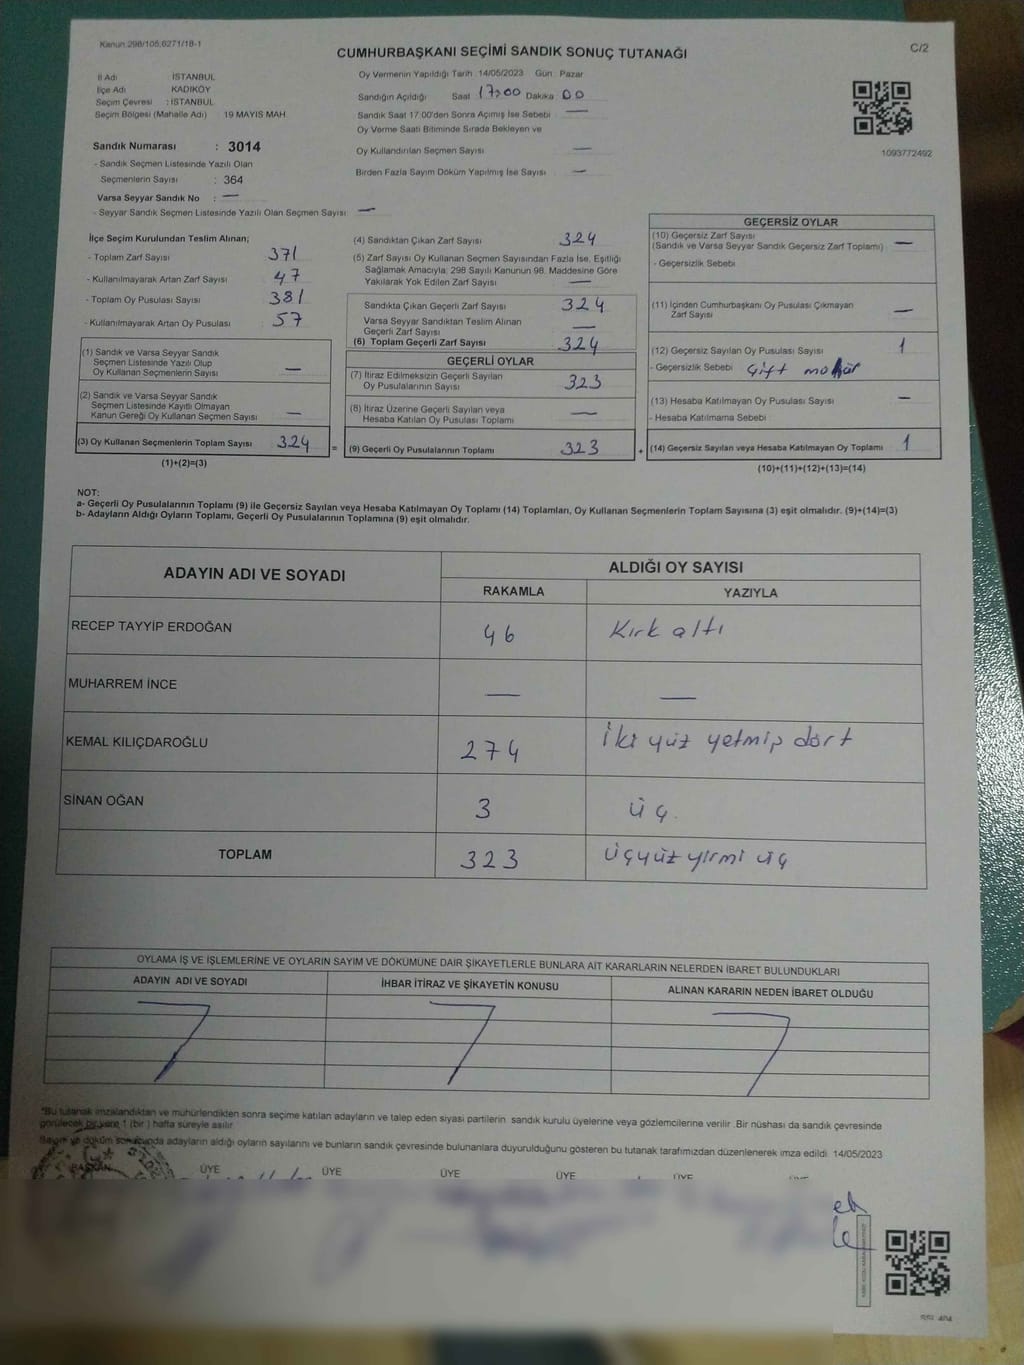 Kanun:298/105,6271/18-1
C/2
CUMHURBAŞKANI SEÇİMİ SANDIK SONUÇ TUTANAĞI
İl Adı : İSTANBUL
İlçe Adı : KADIKÖY
Seçim Çevresi : İSTANBUL
Seçim Bölgesi (Mahalle Adı) 19 MAYIS MAH.
Oy Vermenin Yapıldığı Tarih : 14/05/2023 Gün : Pazar
Sandığın Açıldığı Saat 17:00 Dakika 00
Sandık Saat 17.00'den Sonra Açımış İse Sebebi —
Oy Verme Saati Bitiminde Sırada Bekleyen ve
Oy Kullandırılan Seçmen Sayısı —
Birden Fazla Sayım Döküm Yapılmış İse Sayısı —
1093772492
Sandık Numarası : 3014
- Sandık Seçmen Listesinde Yazılı Olan
Seçmenlerin Sayısı : 364
Varsa Seyyar Sandık No : —
- Seyyar Sandık Seçmen Listesinde Yazılı Olan Seçmen Sayısı —
İlçe Seçim Kurulundan Teslim Alınan;
- Toplam Zarf Sayısı 371
- Kullanılmayarak Artan Zarf Sayısı 47
- Toplam Oy Pusulası Sayısı 381
- Kullanılmayarak Artan Oy Pusulası 57
(1) Sandık ve Varsa Seyyar Sandık
Seçmen Listesinde Yazılı Olup
Oy Kullanan Seçmenlerin Sayısı —
(2) Sandık ve Varsa Seyyar Sandık
Seçmen Listesinde Kayıtlı Olmayan
Kanun Gereği Oy Kullanan Seçmen Sayısı —
(3) Oy Kullanan Seçmenlerin Toplam Sayısı 324
(1)+(2)=(3)
=
(4) Sandıktan Çıkan Zarf Sayısı 324
(5) Zarf Sayısı Oy Kullanan Seçmen Sayısından Fazla İse, Eşitliği
Sağlamak Amacıyla; 298 Sayılı Kanunun 98. Maddesine Göre
Yakılarak Yok Edilen Zarf Sayısı —
Sandıkta Çıkan Geçerli Zarf Sayısı 324
Varsa Seyyar Sandıktan Teslim Alınan
Geçerli Zarf Sayısı —
(6) Toplam Geçerli Zarf Sayısı 324
GEÇERLİ OYLAR
(7) İtiraz Edilmeksizin Geçerli Sayılan
Oy Pusulalarının Sayısı 323
(8) İtiraz Üzerine Geçerli Sayılan veya
Hesaba Katılan Oy Pusulası Toplamı —
(9) Geçerli Oy Pusulalarının Toplamı 323
+
GEÇERSİZ OYLAR
(10) Geçersiz Zarf Sayısı
(Sandık ve Varsa Seyyar Sandık Geçersiz Zarf Toplamı) —
- Geçersizlik Sebebi
(11) İçinden Cumhurbaşkanı Oy Pusulası Çıkmayan
Zarf Sayısı —
(12) Geçersiz Sayılan Oy Pusulası Sayısı 1
- Geçersizlik Sebebi Çift mühür
(13) Hesaba Katılmayan Oy Pusulası Sayısı —
- Hesaba Katılmama Sebebi
(14) Geçersiz Sayılan veya Hesaba Katılmayan Oy Toplamı 1
(10)+(11)+(12)+(13)=(14)
NOT:
a- Geçerli Oy Pusulalarının Toplamı (9) ile Geçersiz Sayılan veya Hesaba Katılmayan Oy Toplamı (14) Toplamları, Oy Kullanan Seçmenlerin Toplam Sayısına (3) eşit olmalıdır. (9)+(14)=(3)
b- Adayların Aldığı Oyların Toplamı, Geçerli Oy Pusulalarının Toplamına (9) eşit olmalıdır.
ADAYIN ADI VE SOYADI
ALDIĞI OY SAYISI
RAKAMLA YAZIYLA
RECEP TAYYİP ERDOĞAN 46 Kırk altı
MUHARREM İNCE — —
KEMAL KILIÇDAROĞLU 274 İki yüz yetmiş dört
SİNAN OĞAN 3 üç.
TOPLAM 323 üçyüz yirmi üç
OYLAMA İŞ VE İŞLEMLERİNE VE OYLARIN SAYIM VE DÖKÜMÜNE DAİR ŞİKAYETLERLE BUNLARA AİT KARARLARIN NELERDEN İBARET BULUNDUKLARI
ADAYIN ADI VE SOYADI İHBAR İTİRAZ VE ŞİKAYETİN KONUSU ALINAN KARARIN NEDEN İBARET OLDUĞU
*Bu tutanak imzalandıktan ve mühürlendikten sonra seçime katılan adayların ve talep eden siyasi partilerin sandık kurulu üyelerine veya gözlemcilerine verilir. Bir nüshası da sandık çevresinde
görülecek bir yere 1 (bir ) hafta süreyle asılır.
Sayım ve döküm sonucunda adayların aldığı oyların sayılarını ve bunların sandık çevresinde bulunanlara duyurulduğunu gösteren bu tutanak tarafımızdan düzenlenerek imza edildi. 14/05/2023
BAŞKAN ÜYE ÜYE ÜYE ÜYE ÜYE